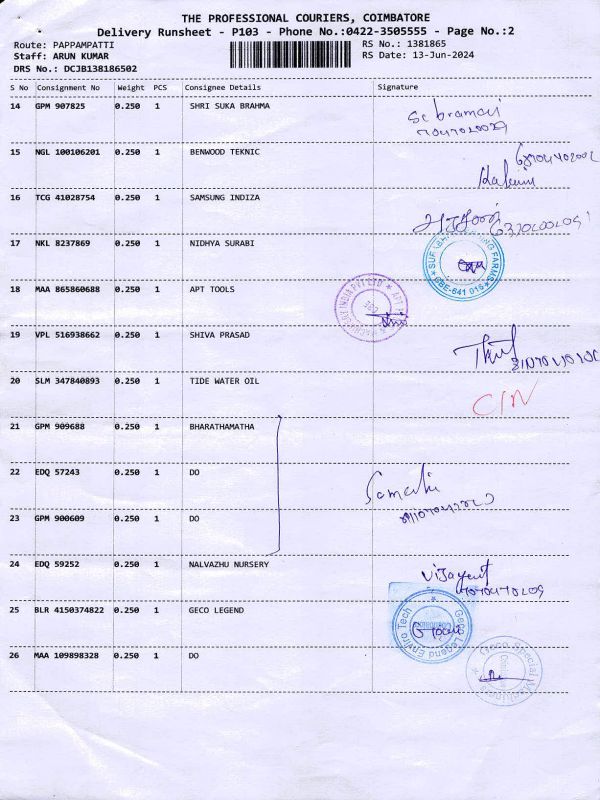 THE PROFESSIONAL COURIERS, COIMBATORE
Delivery Runsheet - P103 - Phone No.:0422-3505555 - Page No.:2
Route: PAPPAMPATTI RS No.: 1381865
Staff: ARUN KUMAR RS Date: 13-Jun-2024
DRS No.: DCJB138186502
S No Consignment No Weight PCS Consignee Details Signature
14 GPM 907825 0.250 1 SHRI SUKA BRAHMA
15 NGL 100106201 0.250 1 BENWOOD TEKNIC
16 TCG 41028754 0.250 1 SAMSUNG INDIZA
17 NKL 8237869 0.250 1 NIDHYA SURABI
18 MAA 865860688 0.250 1 APT TOOLS
19 VPL 516938662 0.250 1 SHIVA PRASAD
20 SLM 347840893 0.250 1 TIDE WATER OIL CIN
21 GPM 909688 0.250 1 BHARATHAMATHA
22 EDQ 57243 0.250 1 DO
23 GPM 900609 0.250 1 DO
24 EDQ 59252 0.250 1 NALVAZHU NURSERY
25 BLR 4150374822 0.250 1 GECO LEGEND
Geco Legend Enviro Tech
26 MAA 109898328 0.250 1 DO
Geco Special